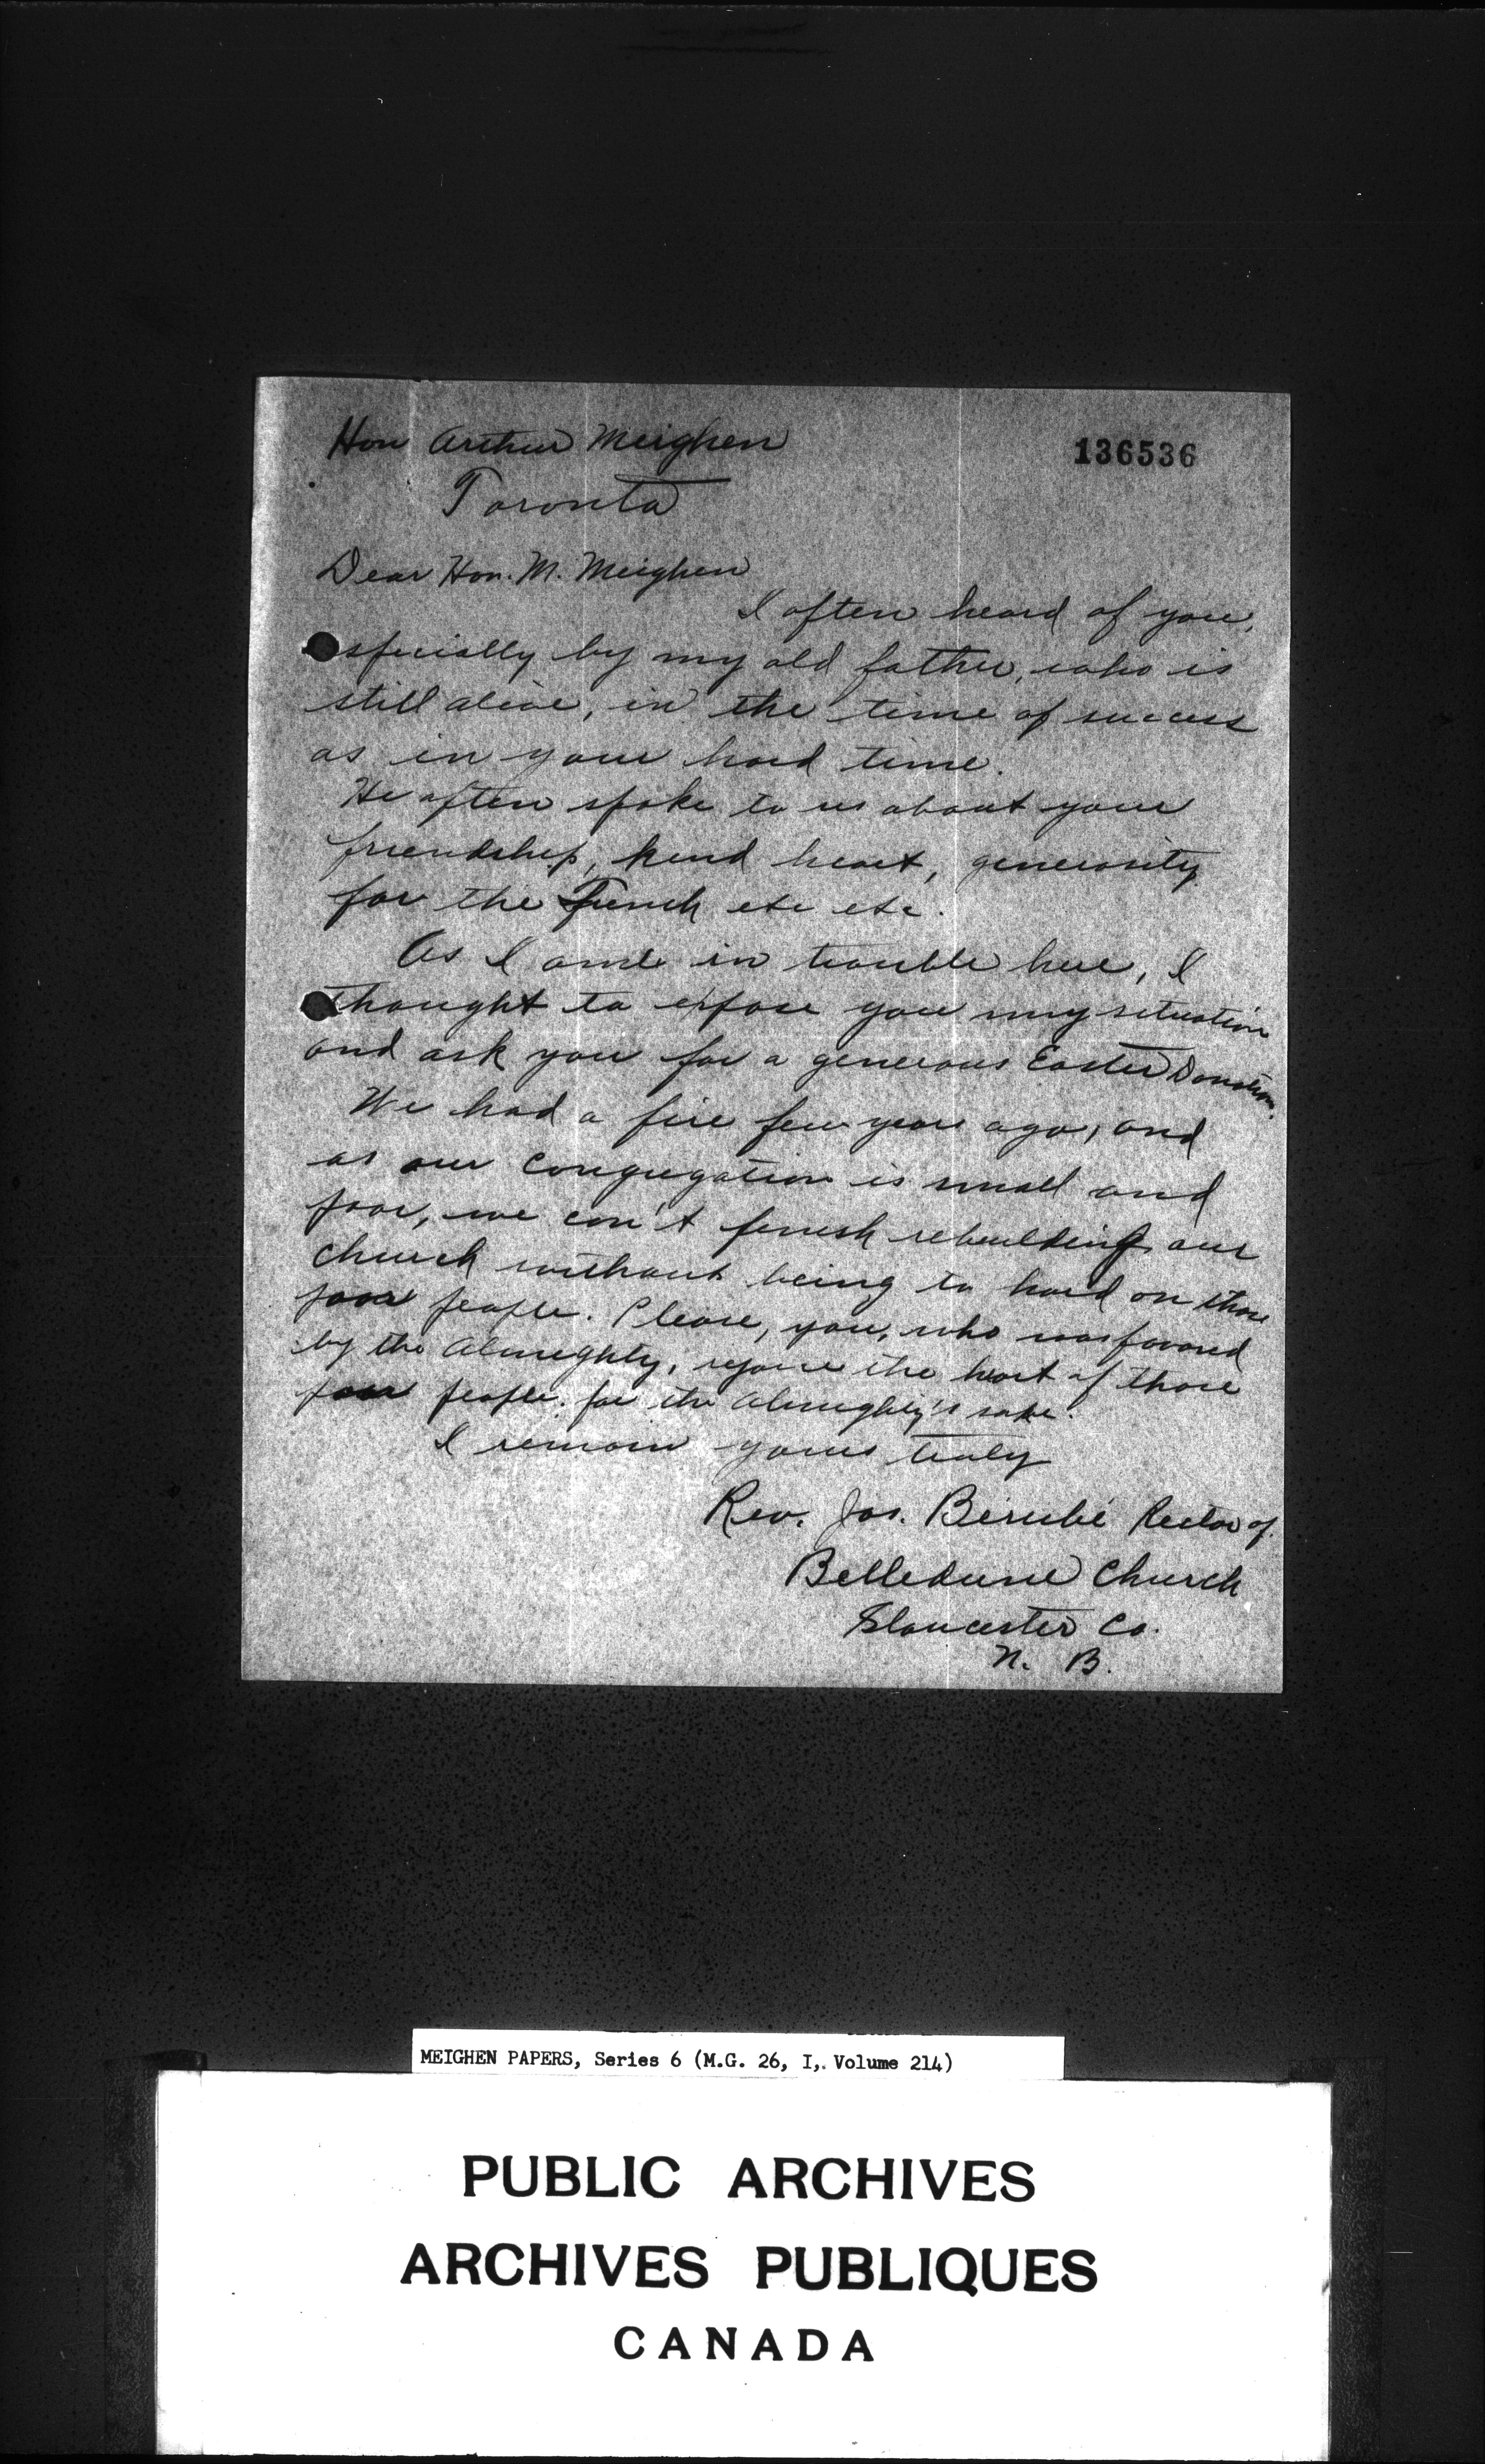 Hon Arthur Meighen
136536
Toronto
Dear Hon. M. Meighen
I often heard of you,
especially by my old father, who is
still alive, in the time of success
as in your hard time.
He often spoke to us about your
friendship, kind heart, generosity
for the French etc etc.
As I am in trouble here, I
thought to expose you my situation
and ask you for a generous Easter Donation.
We had a fire few years ago, and
as our congregation is small and
poor, we can't finish rebuilding our
church without being to hard on those
poor people. Please, you, who was favored
by the Almighty, rejoice the heart of those
poor people. for the Almighty's sake.
I remain yours truly
Rev. Jos. Bérubé Rector of
Belledune Church
Gloucester Co.
N. B.
MEIGHEN PAPERS, Series 6 (M.G. 26, I, Volume 214)
PUBLIC ARCHIVES
ARCHIVES PUBLIQUES
CANADA